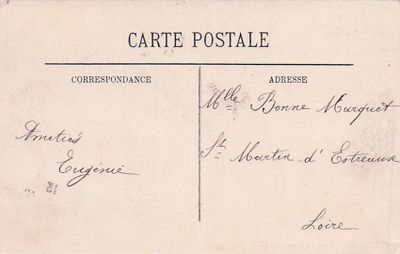 CARTE POSTALE
CORRESPONDANCE
ADRESSE
Mlle Bonne Murquet
St Martin d'Estreaux
Loire
Amitiés
Eugénie